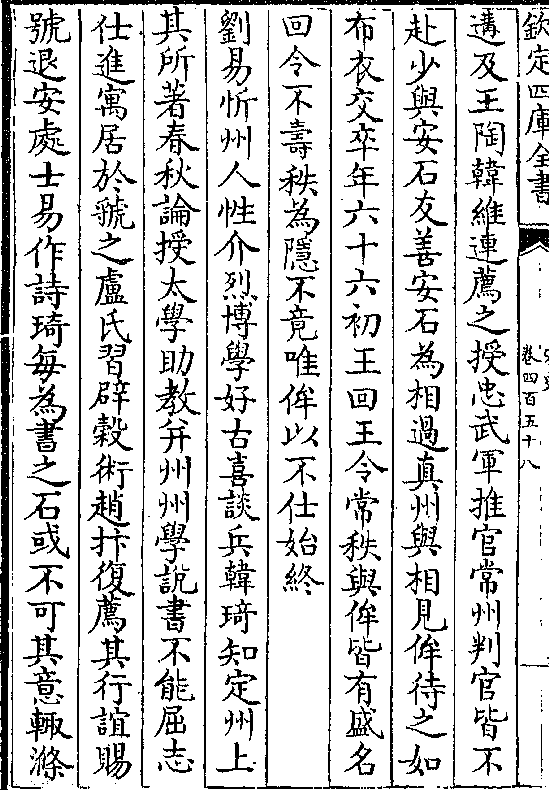 欽定四庫全書
卷四百五十八
遘及王陶韓維連薦之授忠武軍推官常州判官皆不
赴少與安石友善安石為相過真州與相見侔待之如
布衣交卒年六十六初王回王令常秩與侔皆有盛名
回令不壽秩為隱不竟唯侔以不仕始終
劉易忻州人性介烈博學好古喜談兵韓琦知定州上
其所著春秋論授太學助教幷州州學說書不能屈志
仕進寓居於虢之盧氏習辟穀術趙抃復薦其行誼賜
號退安處士易作詩琦每為書之石或不可其意輙滌